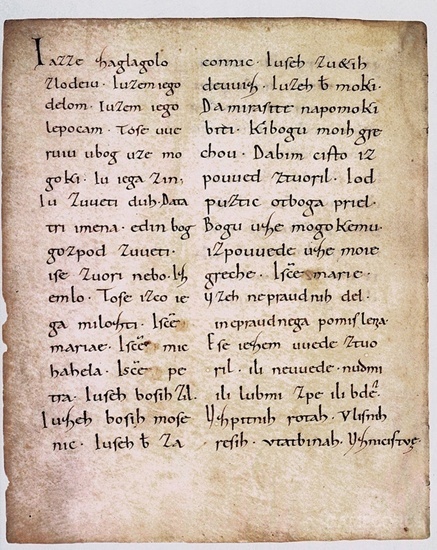 Iazze zaglagolo
zlodeiu. Iuzem iego
delom. Iuzem iego
lepocam. Tose vue
ruiu ubog uze mo
goki. Iu iega zin,
Iu zuueti duh. Data
tri imena. edin bog
gozpod zuueti.
ise zuori nebo. Izh
emlo. Tose izco ie
ga milozti. Iscē
mariae. Iscē mic
hahela. Iscē pe
tra. Iuseh bosih zil.
Iuzheh bosih mose
nic. Iuseh ƀ za
connic. Iuseh zu&ih
deuuih. Iuzeh ƀ moki.
Da mirasite napomoki
biti. Kibogu moih gre
chou. Dabim cisto iz
pouued ztuoril. Iod
puztic otboga priel.
Bogu uze mogokemu.
izpouuede uze moie
greche. Iscē marie.
Uzeh nepraudnih del.
inepraudnega pomislera.
Ese iezem uuede ztuo
ril. ili neuuede. nudmi
ili lubmi zpe ili bde.
Uzpitnih rotah. Vlisnih
resih. vtatbinah. Uznicistve